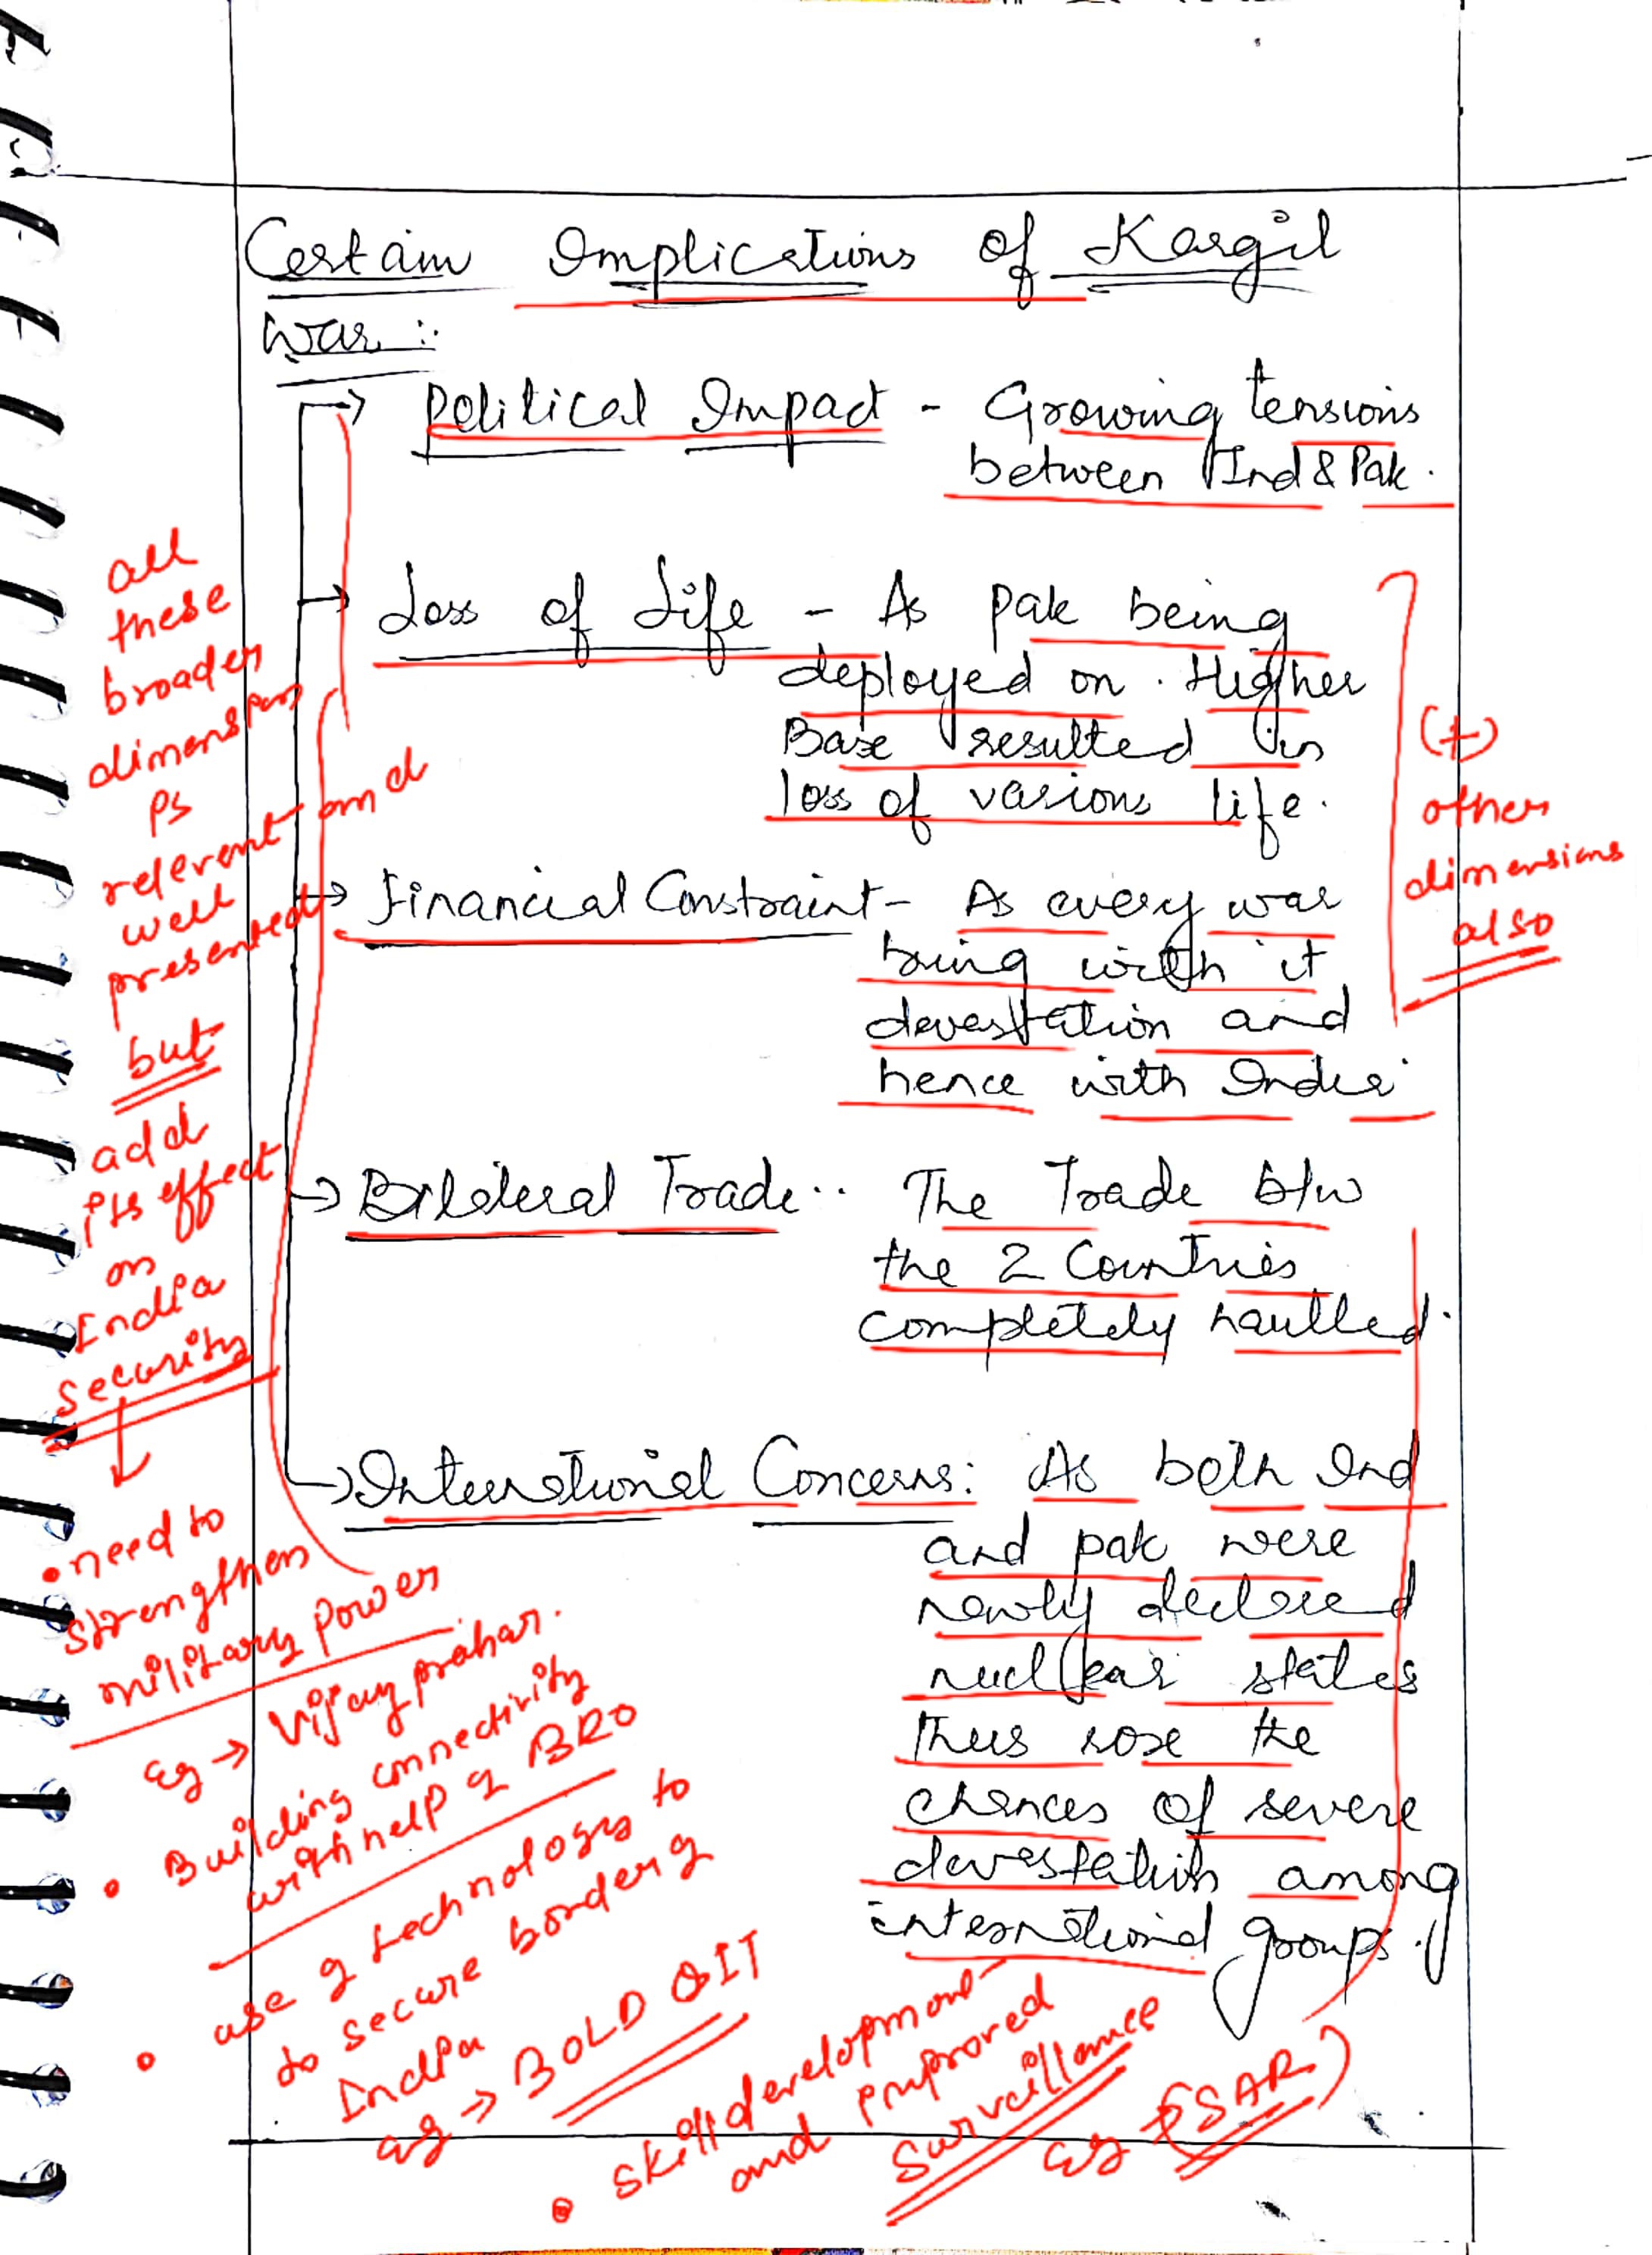 Certain Implications of Kargil
War :
Political Impact - Growing tensions
between Ind & Pak.
Loss of Life - As Pak being
deployed on Higher
Base resulted in
loss of various life.
Financial Constraint - As every war
bring with it
devastation and
hence with India.
Bilateral Trade.. The Trade b/w
the 2 Countries
completely haulted.
International Concerns: As both Ind
and pak were
newly declared
nuclear states
thus rose the
chances of severe
devastation among
international groups.
all
these
broader
dimension
is
relevent and
well
presented
but
add
its effect
on
India
security
• need to
strengthen
military power
eg → Vijay prahar.
• Building connectivity
with help of BRO
• use of technology to
to secure border of
India
eg → BOLD QIT
• skill development
and improved
Surveillance
eg → (SAR)
(+)
other
dimensions
also